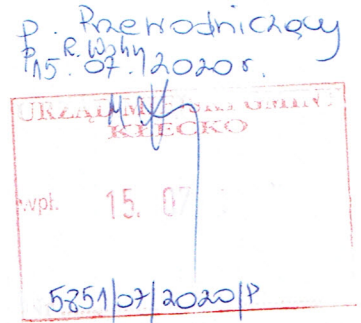 P. Przewodniczący
p. R. Wzhy
15.07.2020 r.
URZĄD MIEJSKI GMINY
KŁECKO
wpł. 15. 07
5851/07/2020/P